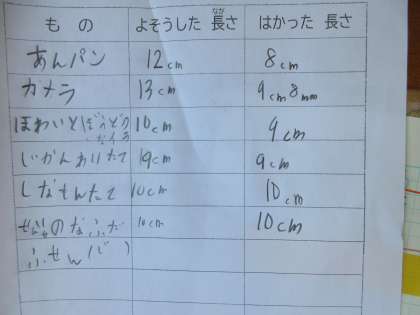 もの よそうした 長さ はかった 長さ
あんパン 12cm 8cm
カメラ 13cm 9cm8mm
ほわいと 10cm 9cm
じかんわりたて 19cm 9cm
しなもんたて 10cm 10cm
のなふだ 10cm 10cm
ふせん